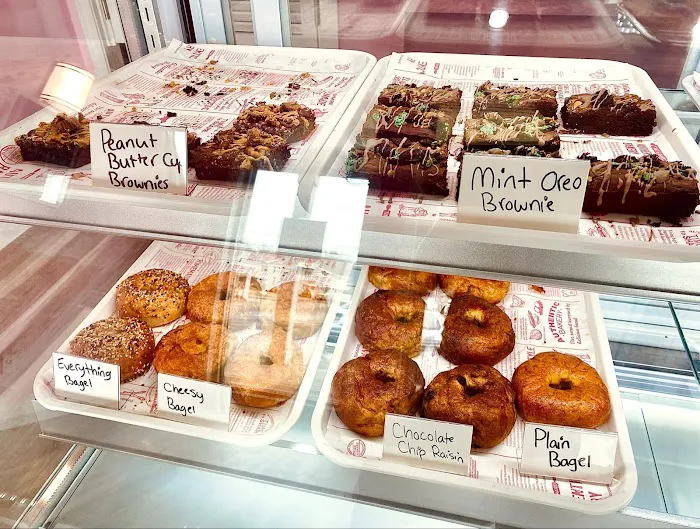 Peanut
Butter Cup
Brownies
Mint Oreo
Brownie
Everything
Bagel
Cheesy
Bagel
Chocolate
Chip Raisin
Plain
Bagel
AUTHENTIC
BAKERY